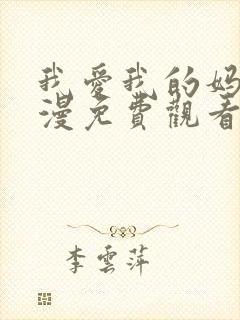 我愛我的媽
漫免費觀看
李雲萍